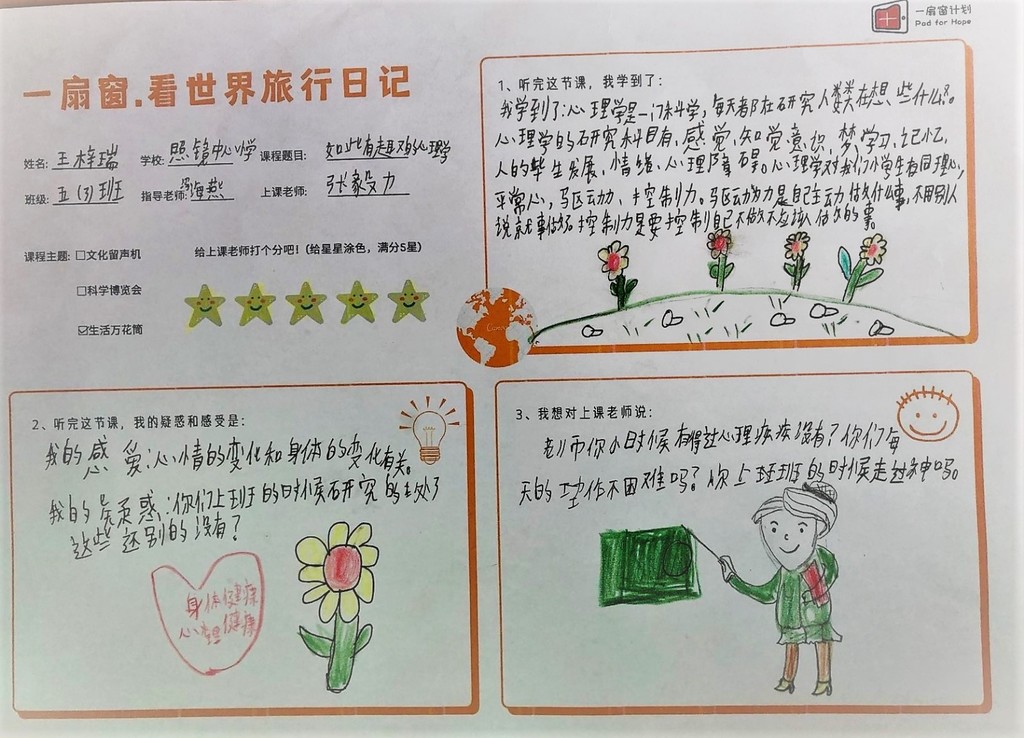 一扇窗计划
Pad for Hope
一扇窗.看世界旅行日记
姓名: 王梓瑞 学校: 照镜中心小学 课程题目: 如此有趣的心理学
班级: 五(3)班 指导老师: 海燕 上课老师: 张毅力
课程主题: □文化留声机 给上课老师打个分吧!(给星星涂色,满分5星)
□科学博览会
☑生活万花筒
1、听完这节课,我学到了:
我学到了:心理学是一门科学,每天都在研究人类大在想些什么。
心理学的研究科目有,感觉,知觉,意识,梦,学习,记忆,
人的毕生发展,情绪,心理障碍。心理学对我们小学生有同理心,
平常心,马区动力,控制力。马区动力是自己主动做什么事,不用别人
说就事做好。控制力是要控制自己不做不应该人做的事。
2、听完这节课,我的疑惑和感受是:
我的感爱:心情的变化和身体的变化有关。
我的疑惑:你们上班的时候研究的去处了
这些还别的没有?
身体健康
心理健康
3、我想对上课老师说:
老师你小时候有得过心理疾病没有?你们每
天的工作不困难吗?你上班的时候走过神吗。